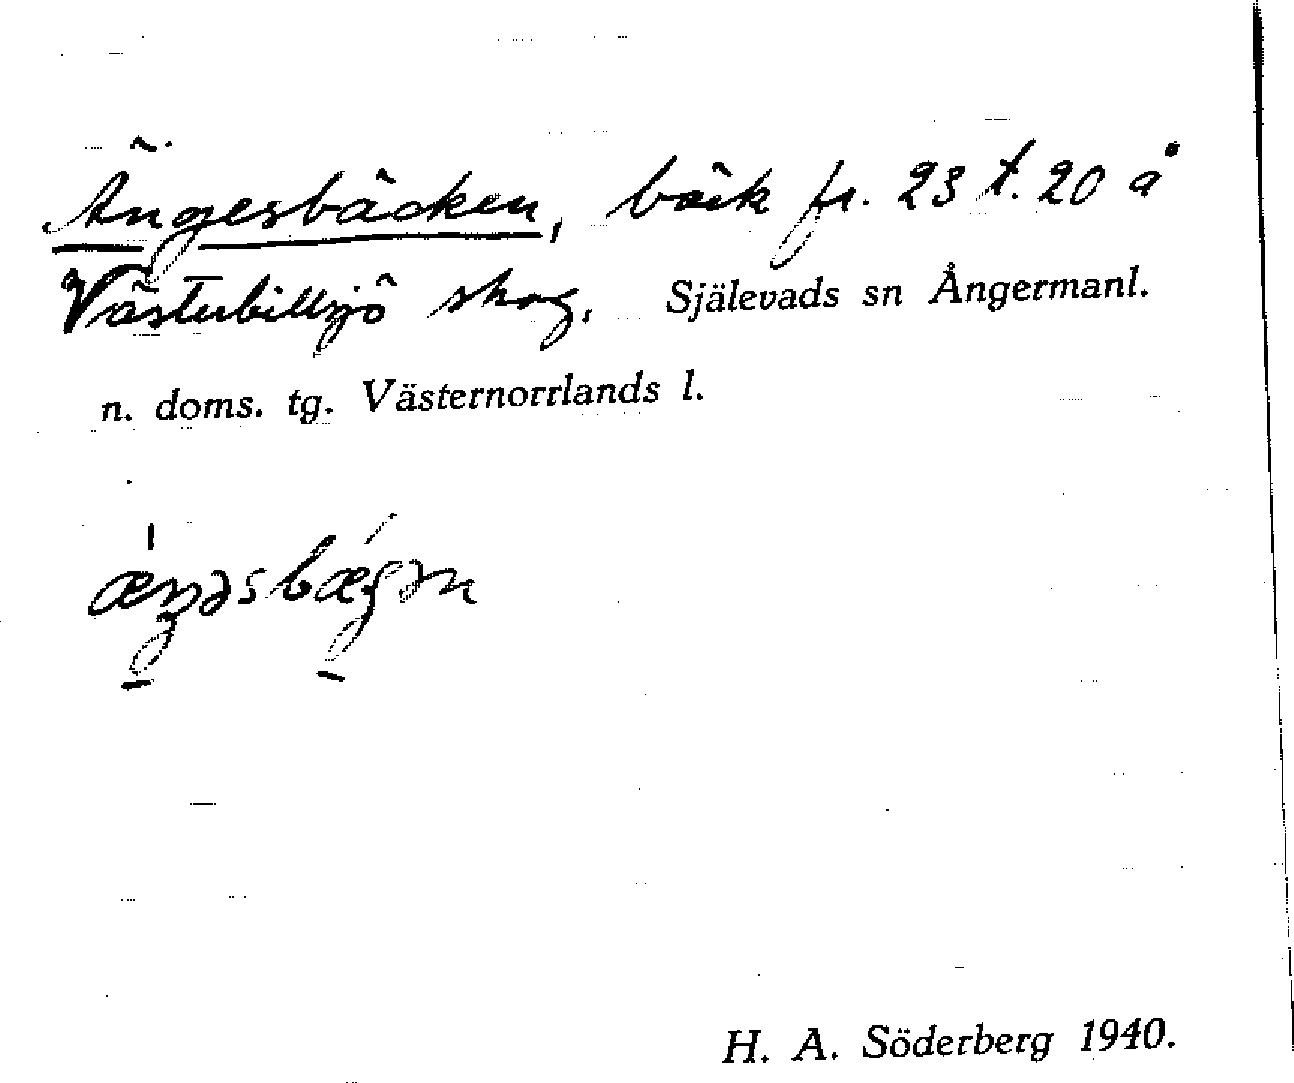 Ängesbäcken, bäck fr. 23 t. 20 å
Västerbillsjö skog. Själevads sn Ångermanl.
n. doms. tg. Västernorrlands l.
H. A. Söderberg 1940.